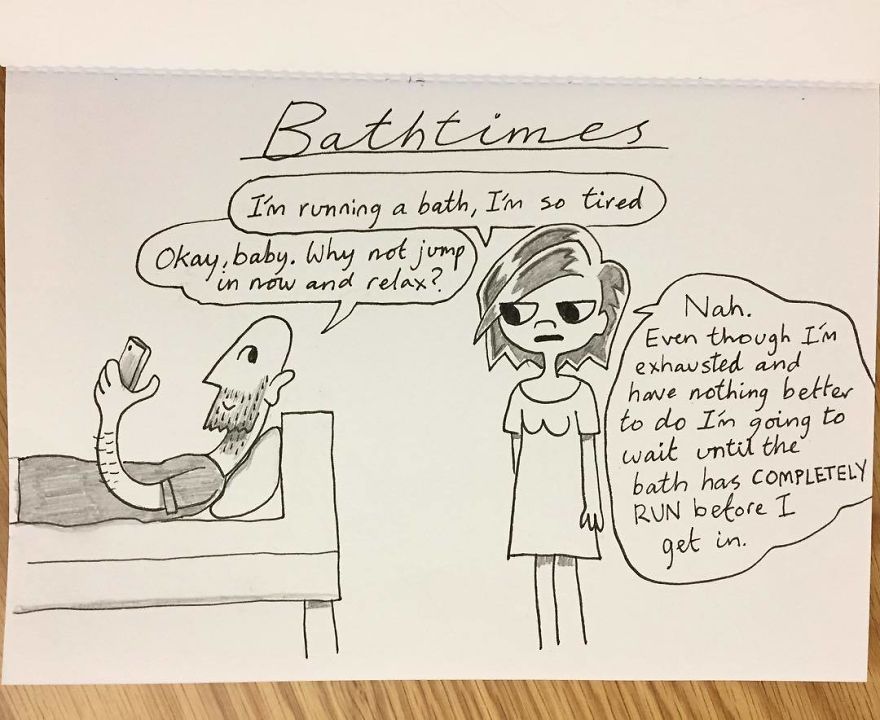 Bathtimes
I'm running a bath, I'm so tired
Okay, baby. Why not jump
in now and relax?
Nah.
Even though I'm
exhausted and
have nothing better
to do I'm going to
wait until the
bath has COMPLETELY
RUN before I
get in.